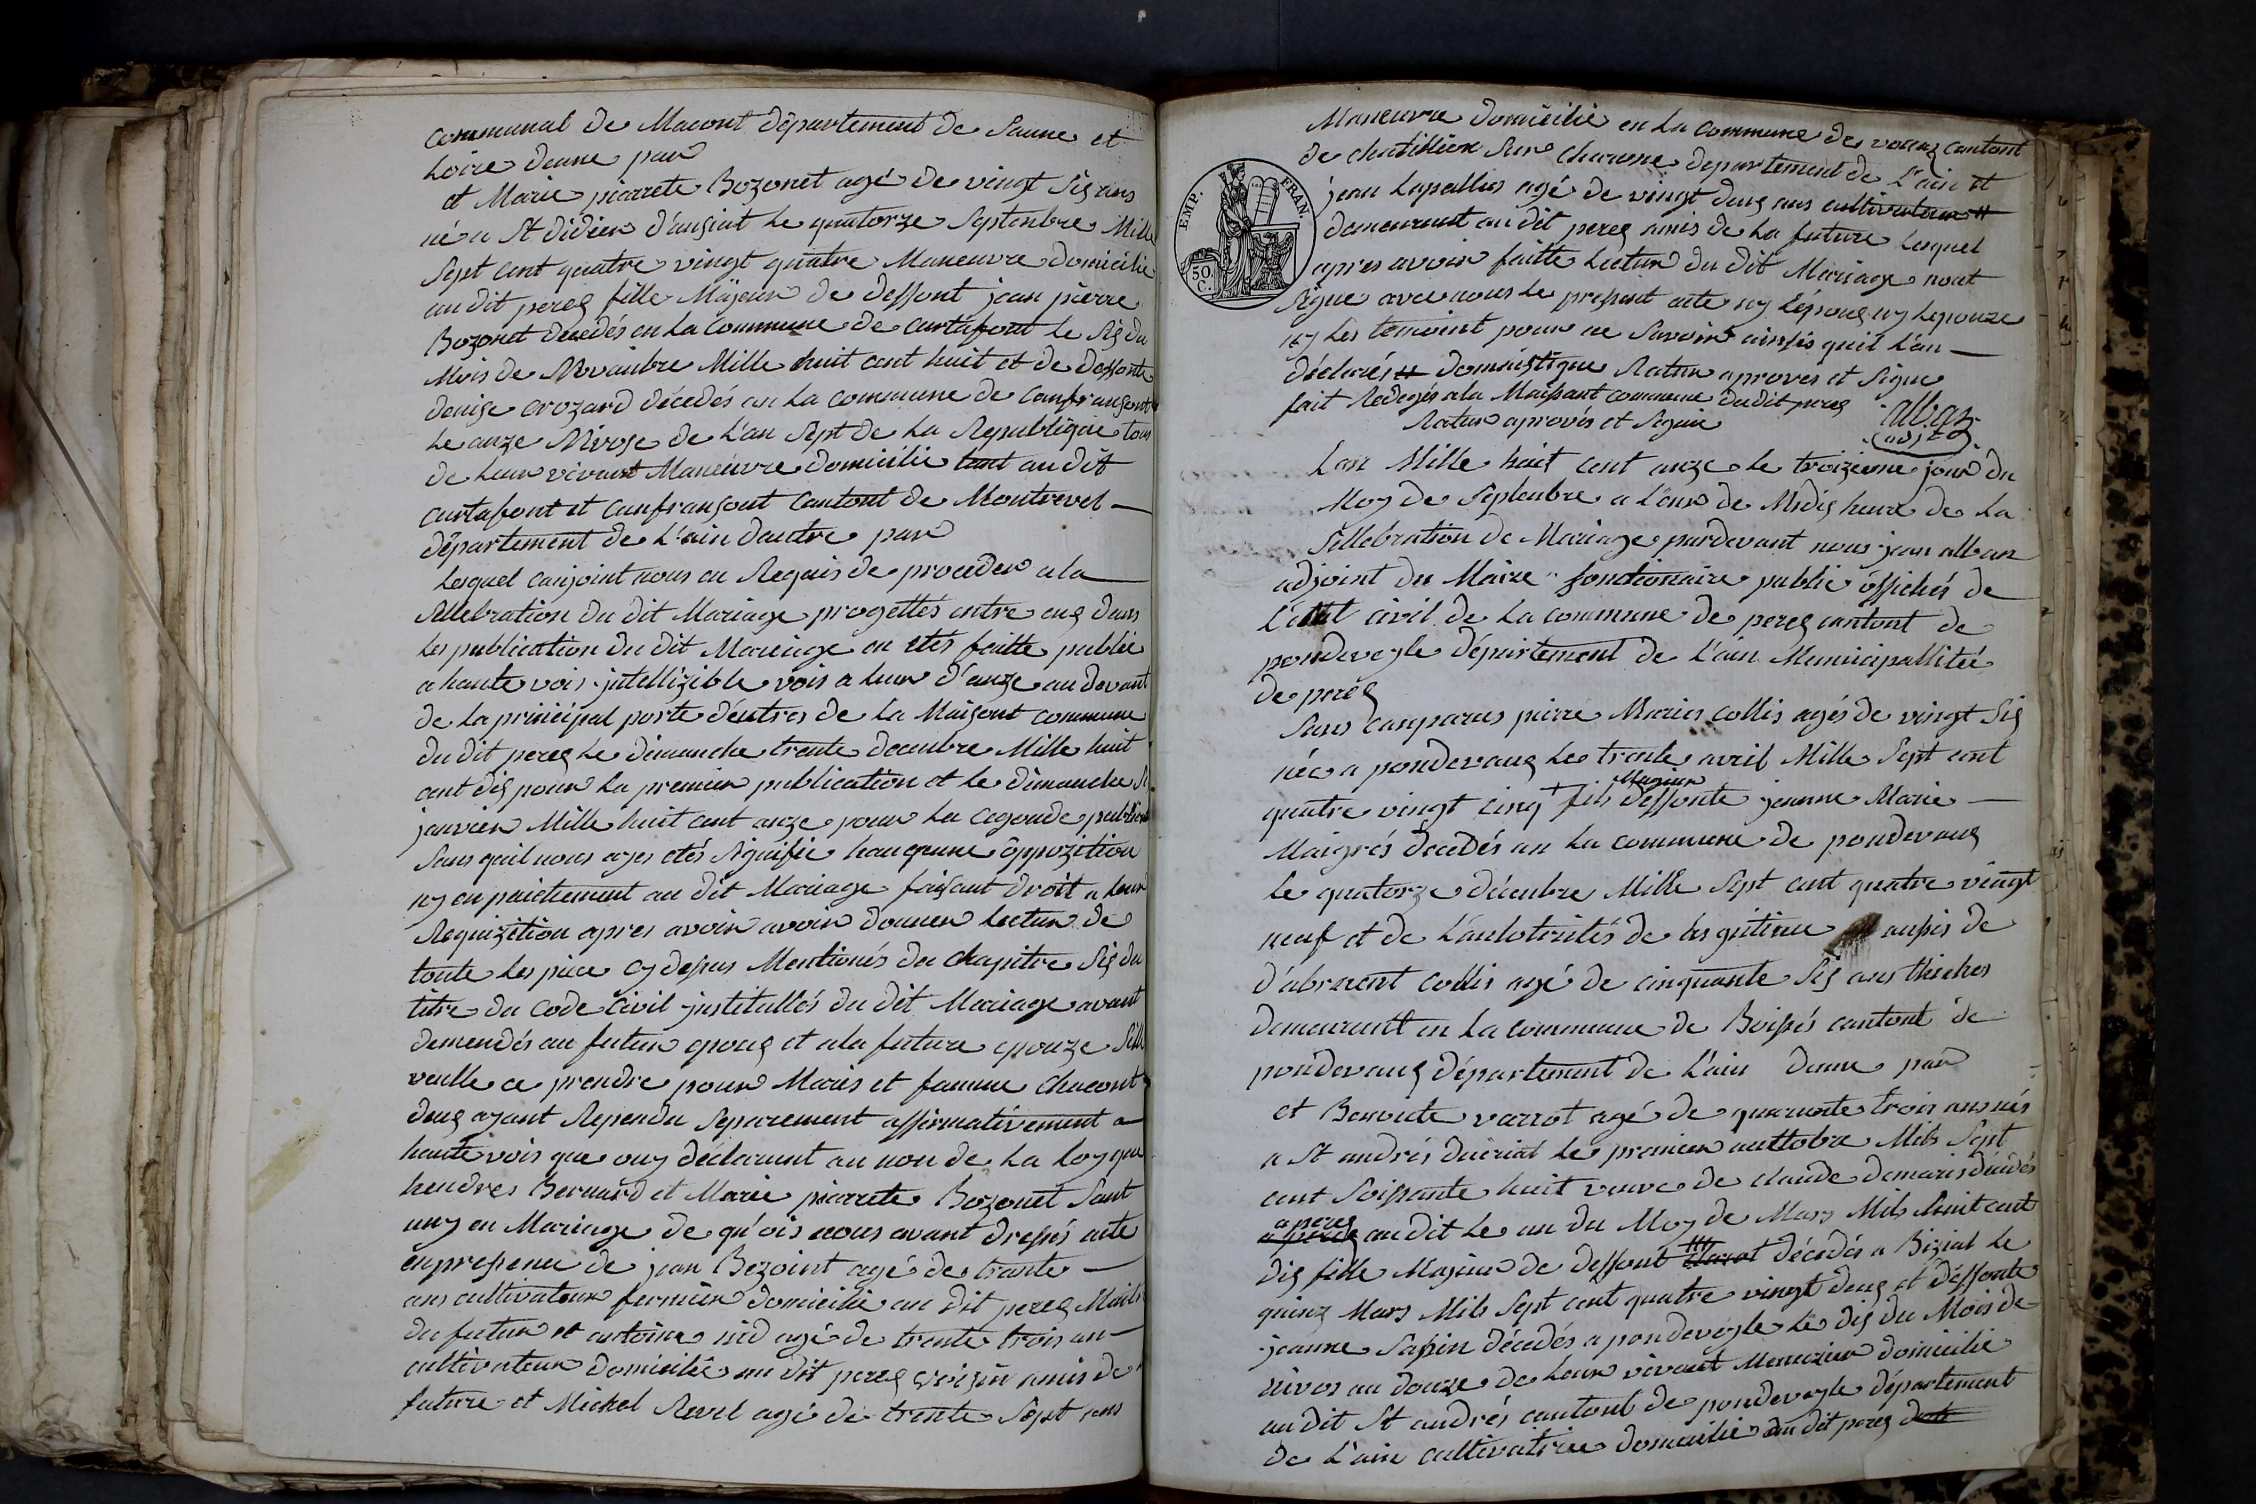 communal de Macont département de Saune et
Loire dune par
et Marie pierrete Bozonet agé de vingt sis ans
né a St didier d'aussiat le quatorze Septenbre Mille
Sept cent quatre vingt quatre Maneuvre domicilie
au dit peres fille Majeur de deffont jean pierre
Bozonet décédés en la commune de curtafont le sis du
Mois de Novanbre Mille huit cent huit et de deffonte
denise crozard décedés an la commune de confransont
le anze Nivose de L'an Sept de La Republique tous
de leur vivant Maneuvre domicilie tant au dit
curtafont et canfransont cantont de Montrevel
département de L'ain dautre par
Lesquel conjoint nous on Requis de proceder a la
sellebration du dit Mariage progettés entre eus dans
les publication du dit Mariage on etés faitte publie
a haute vois jntellizible vois a leur d'anze au devant
de la principal porte d'entres de la Maisont commune
du dit peres le dimanche trente decenbre Mille huit
cent dis pour la premier publication et le dimanche
janvier Mille huit cent anze pour la cegonde publication
Sans quil nous ayes etés Signifie haucqunne opposition
ny enpaichement au dit Mariage faisant droit a leur
Requizition apres avoir avoir donner lecture de
toute les piece cy desus Mentionés du chapitre sis du
titre du code civil jnstitullés du dit Mariage avant
demendés au futur epous et a la future epouze
veulle ce prendre pour Maris et famme chacont
deus ayant Rependu Separement affirmativement a
haute vois que ouy declarant au non de la loy que
hendres Bernard et Marie pierrete Bozonet Sont
uny en Mariage de qu'ois nous avant dressés acte
enpresence de jean Bezoint agé de trante
ans cultivateur fermier domicilie au dit peres
du futur et antoine nid agé de trente trois an
cultivateur domicilie au dit peres voisin amis de
future et Michel Revel agé de trente Sept ans
Maneuvre domicilié en la commune de vonnas cantont
de chatillion sur charone département de L'ain et
jean Lapallus agé de vingt deus ans cultivateur #
demeurant au dit peres amis de la future lesquel
apres avoir faitte lecture du dit Mariage nont
Signe avec nous le present acte ny lépous ny lepouze
ny les temoint pour ne Savoir ainsis quil l'an
déclarés # domaistique Rature aproves et Signe
fait Redegés a la Maisant commune du dit peres
Rature aprovés et Signe
alban
adjt
EMP. FRAN.
50 C.
Lan Mille huit cent anze le troizieme jour du
Moy de Septenbre a L'eur de Midis heure de la
Sellebration de Mariage pardevant nous jean alban
adjoint du Maire fonctionaire public officiés de
L'etat civil de la commune de peres cantont de
pondeveyle département de L'ain Municipallitée
de peres
Sans canparus pierre Maries collis agés de vingt Sis
née a pondevaus le trente avril Mille Sept cent
quatre vingt cinq + fils Majeur deffonte jeanne Marie
Maigrés décedés an la commune de pondevaus
le quatorze décenbre Mille Sept cent quatre vingt
neuf et de L'autotrités de ausis de
d'abrment collis agé de cinquante Sis ans
demeurant en la commune de Boissés cantont de
pondevaus département de L'ain dune par
et Benoite varrot agé de quarante trois ans nés
a St andrés le premier auttobre Mils Sept
cent Soissante huit veuve de claude demaris décédés
a peres au dit le un du Moy de Mars Mils huit cent
dis fille Majeur de deffont décédés a Bizial le
quinz Mars Mils Sept cent quatre vingt deus et deffonte
jeanne Sapin décédés a pondeveyle le dis du Mois de
nivos an douze de leur vivant domicilie
au dit St andrés cantont de pondeveyle département
de L'ain cultivatrice domicilie au dit peres